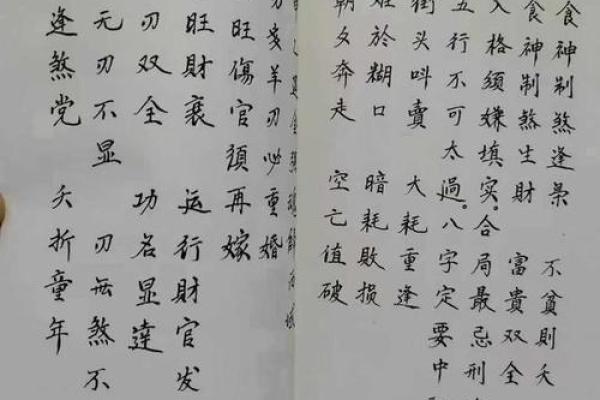 食神制煞逢枭 不貧則夭
食神制煞生財 富貴双全
入格须嫌填实。合局最忌刑
五行不可太過。八字定要中
街头叫賣 大耗重逢
於糊口 暗耗敗损
朝夕奔走 空亡值破
刃必重婚
旺傷官須再嫁
旺財衰 运行財官发
刃双全 功名显達
无刃不显 刃無煞不
逢煞党 夭折童年